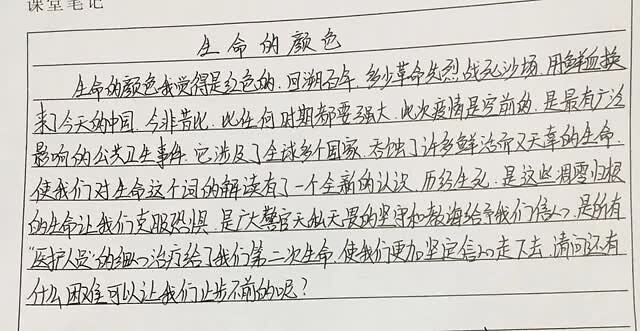 课堂笔记
生命的颜色
生命的颜色我觉得是红色的,回溯百年,多少革命先烈战死沙场,用鲜血换
来了今天的中国,今非昔比,比任何时期都要强大,此次疫情是空前的,是最有广泛
影响的公共卫生事件,它涉及了全球多个国家,吞蚀了许多鲜活而又无辜的生命,
使我们对生命这个词的解读有了一个全新的认识,历经生死,是这些凋零归根
的生命让我们克服恐惧,是广大警官无私无畏的坚守和教诲给予我们信心,是所有
"医护人员"的细心治疗给了我们第二次生命,使我们更加坚定信心走下去,请问还有
什么困难可以让我们止步不前的呢?